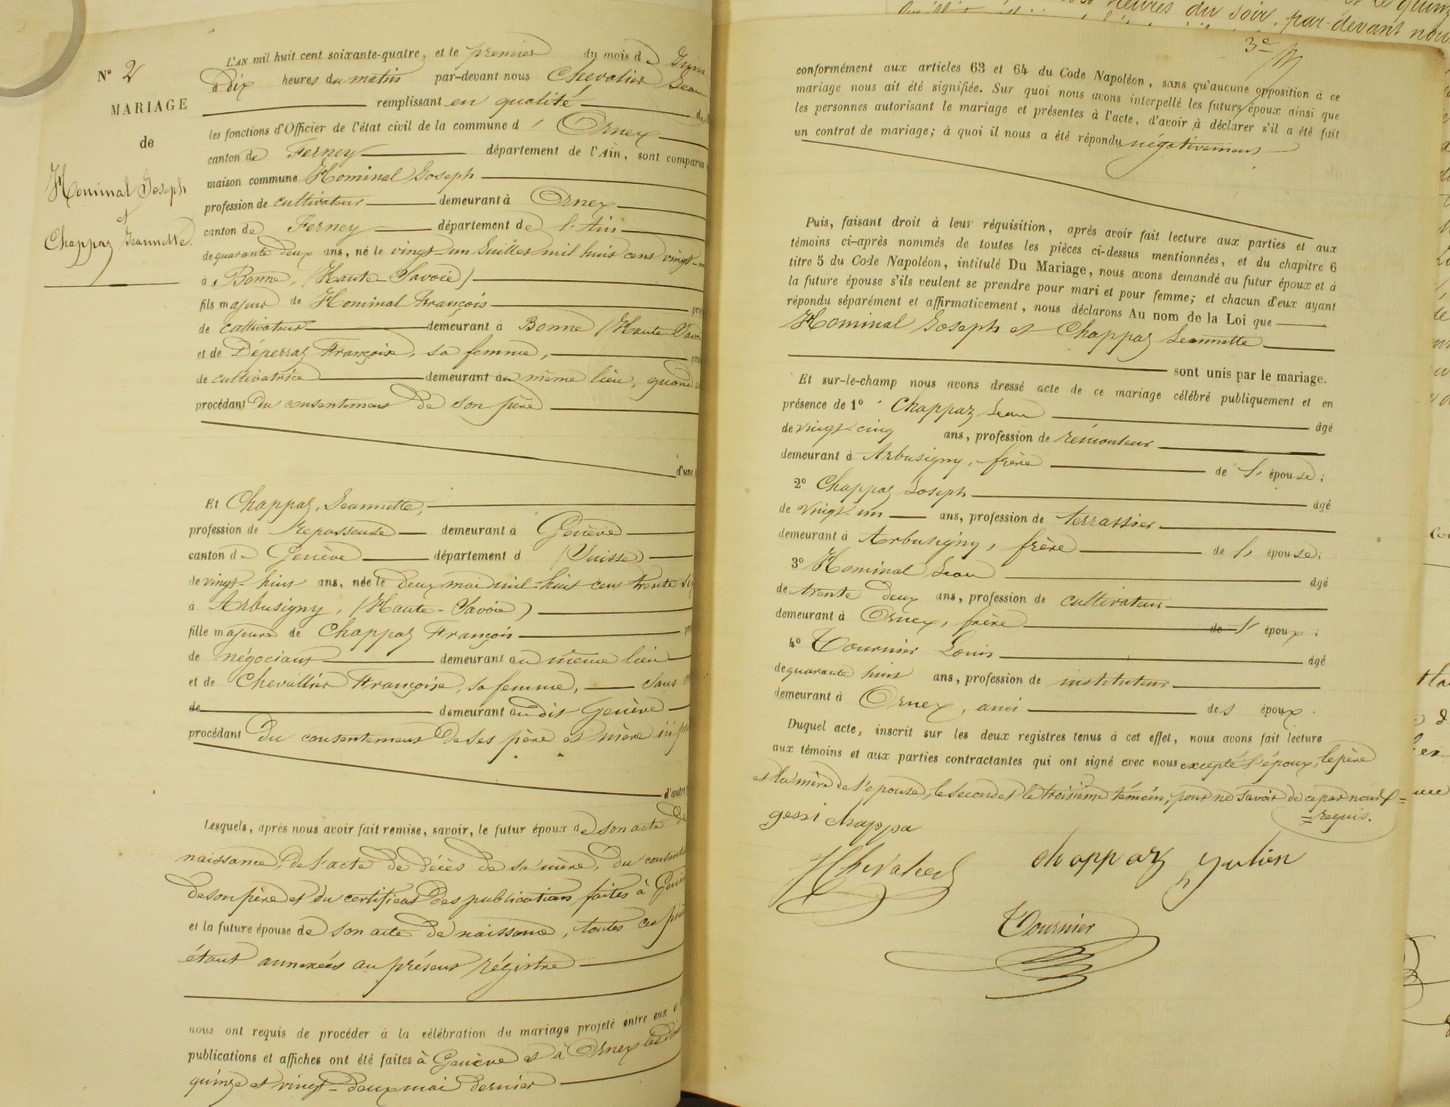 N° 2
MARIAGE
de
Hominal Joseph
et
Chappaz Jeannette.
L'AN mil huit cent soixante-quatre, et le premier du mois de Juin
à dix heures du matin par-devant nous Chevalier Jean
remplissant en qualité de
les fonctions d'Officier de l'état civil de la commune d' Ornex
canton de Ferney département de l'Ain, sont comparus
maison commune Hominal Joseph
profession de cultivateur demeurant à Ornex
canton de Ferney département de l'Ain
de quarante deux ans, né le vingt-un Juillet mil huit cent vingt-un
à Bonne, (Haute Savoie)
fils majeur de Hominal François
de cultivateur demeurant à Bonne (Haute Savoie
et de Déperraz Françoise, sa femme,
de cultivatrice demeurant au même lieu, quand
procédant du consentement de son père
d'une
Et Chappaz, Jeannette,
profession de Repasseuse demeurant à Genève
canton de Genève département d (Suisse)
de vingt-huit ans, née le deux mai mil huit cent trente six
à Arbusigny, (Haute-Savoie)
fille majeure de Chappaz François
de négociant demeurant au même lieu
et de Chevallier Françoise, sa femme, sans
de demeurant au dit Genève
procédant du consentement de ses père et mère
d'autre
Lesquels, après nous avoir fait remise, savoir, le futur époux de son acte de
naissance, de l'acte de décès de sa mère, du consentement
de son père et du certificat des publications faites à Genève
et la future épouse de son acte de naissance, toutes ces
étant annexées au présent régistre
nous ont requis de procéder à la célébration du mariage projeté entre eux
publications et affiches ont été faites à Genève et à Ornex les
quinze et vingt-deux mai dernier
3e
conformément aux articles 63 et 64 du Code Napoléon, sans qu'aucune opposition à ce
mariage nous ait été signifiée. Sur quoi nous avons interpellé les futurs époux ainsi que
les personnes autorisant le mariage et présentes à l'acte, d'avoir à déclarer s'il a été fait
un contrat de mariage; à quoi il nous a été répondu négativement
Puis, faisant droit à leur réquisition, après avoir fait lecture aux parties et aux
témoins ci-après nommés de toutes les pièces ci-dessus mentionnées, et du chapitre 6
titre 5 du Code Napoléon, intitulé Du Mariage, nous avons demandé au futur époux et à
la future épouse s'ils veulent se prendre pour mari et pour femme; et chacun d'eux ayant
répondu séparément et affirmativement, nous déclarons Au nom de la Loi que
Hominal Joseph et Chappaz Jeannette
sont unis par le mariage.
Et sur-le-champ nous avons dressé acte de ce mariage célébré publiquement et en
présence de 1° Chappaz Jean âgé
de vingt cinq ans, profession de rémouleur
demeurant à Arbusigny, frère de l' épouse;
2° Chappaz Joseph âgé
de vingt un ans, profession de terrassier
demeurant à Arbusigny, frère de l' épouse;
3° Hominal Jean âgé
de trente deux ans, profession de cultivateur
demeurant à Ornex, frère de l' époux;
4° Tournier Louis âgé
de quarante huit ans, profession de instituteur
demeurant à Ornex, ami des époux.
Duquel acte, inscrit sur les deux registres tenus à cet effet, nous avons fait lecture
aux témoins et aux parties contractantes qui ont signé avec nous excepté l'époux, le père
et la mère de l'épouse, le second et le troisième témoin, pour ne savoir de ce par nous
requis.
chappaz julien
Tournier